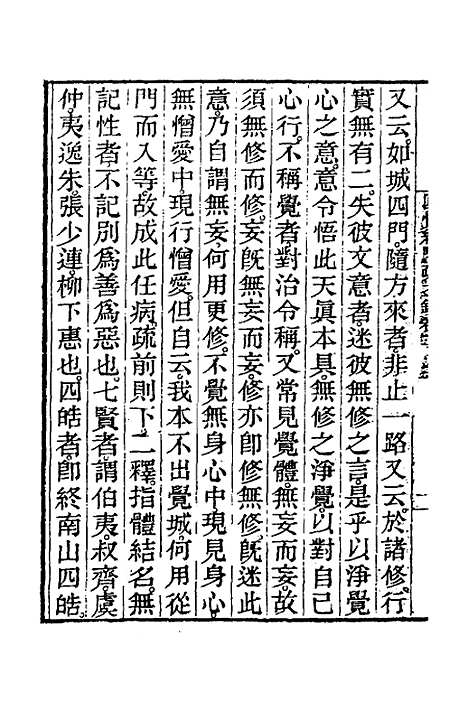 又云。如城四門。隨方來者。非止一路。又云。於諸修行
實無有二。失彼文意者。迷彼無修之言。是乎以淨覺
心之意。意令悟此天眞本具。無修之淨覺。以對自己
心行。不稱覺者。對治令稱。又常見覺體。無妄而妄。故
須無修而修。妄旣無妄而妄。修亦卽修無修。旣迷此
意。乃自謂無妄。何用更修。不覺無身心中。現見身心。
無憎愛中。現行憎愛。但自云。我本不出覺城。何用從
門而入等。故成此任病。疏前則下。二釋指體結名。無
記性者。不記別爲善爲惡也。七賢者。謂伯夷。叔齊。虞
仲。夷逸。朱張。少連。柳下惠也。四皓者。卽終南山四皓。